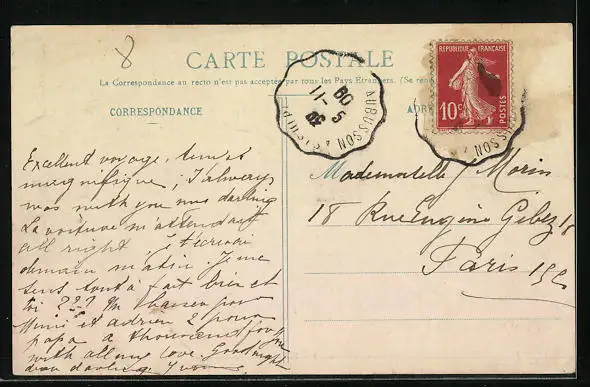 8
CARTE POSTALE
La Correspondance au recto n'est pas acceptée par tous les Pays Etrangers. (Se
CORRESPONDANCE
ADR
REPUBLIQUE FRANÇAISE
10c
POSTES
AUBUSSON
11-5
09
Excellent voyage, temps
magnifique, I always
was with you my darling
La voiture m'attendait
all right je t'écrirai
demain matin. Je me
sens tout à fait bien et
toi ??? Un baiser pour
et adrien 2 pour
papa a thousand for you
with all my love. Good night
dear darling. Yvonne
Mademoiselle Morin
18 Rue Eugène Gibez 18
Paris 15e